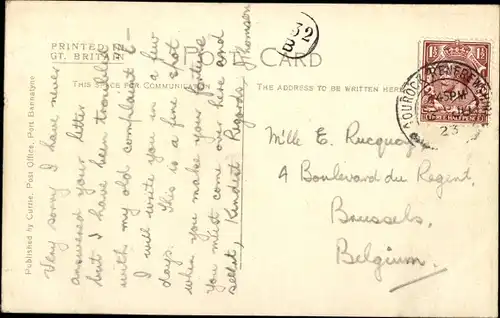 PRINTED IN
GT. BRITAIN
POST CARD
THIS SPACE FOR COMMUNICATION
THE ADDRESS TO BE WRITTEN HERE
Published by Currie, Post Office, Port Bannatyne
Very sorry I have never
answered your letter
but I have been troubled
with my old complaint &
I will write you in a few
days. This is a fine spot
when you make your fortune
you must come over here and
settle, Kindest Regards, Thomson
Mlle E. Rucquoy
4 Boulevard du Régent,
Brussels,
Belgium.
GOUROCK RENFREWSHIRE
23
1½
1½
THREE HALF PENCE